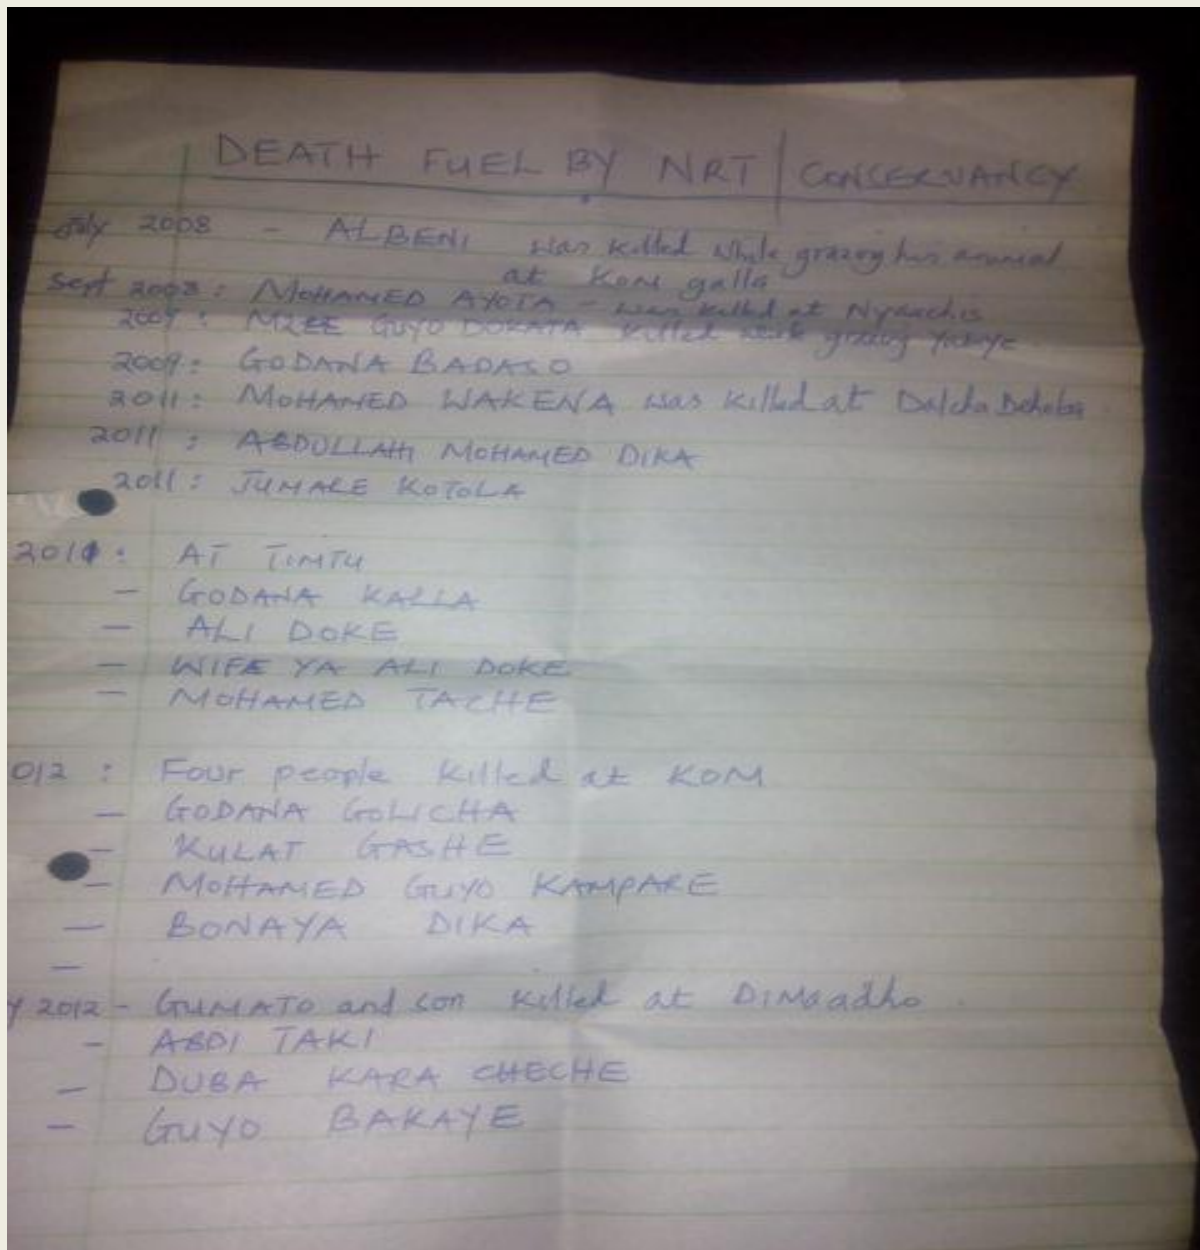 DEATH FUEL BY NRT | CONSERVANCY
July 2008 - ALBENI was killed while grazing his animal
at Kom galla
Sept 2008: MOHAMED AYOTA - was killed at
2009: MZEE GUYO DOKATA killed while grazing
2009: GODANA BADASO
2011: MOHAMED WAKENA was killed at
2011: ABDULLAHI MOHAMED DIKA
2011: JUMALE KOTOLA
AT TIMTU
- GODANA KALLA
- ALI DOKE
- WIFE YA ALI DOKE
- MOHAMED TACHE
012: Four people killed at KOM
- GODANA GOLICHA
- KULAT GASHE
- MOHAMED GUYO KAMPARE
- BONAYA DIKA
-
Y 2012 - GUMATO and son killed at DIMaadho
- ABDI TAKI
- DUBA KARA CHECHE
- GUYO BAKAYE